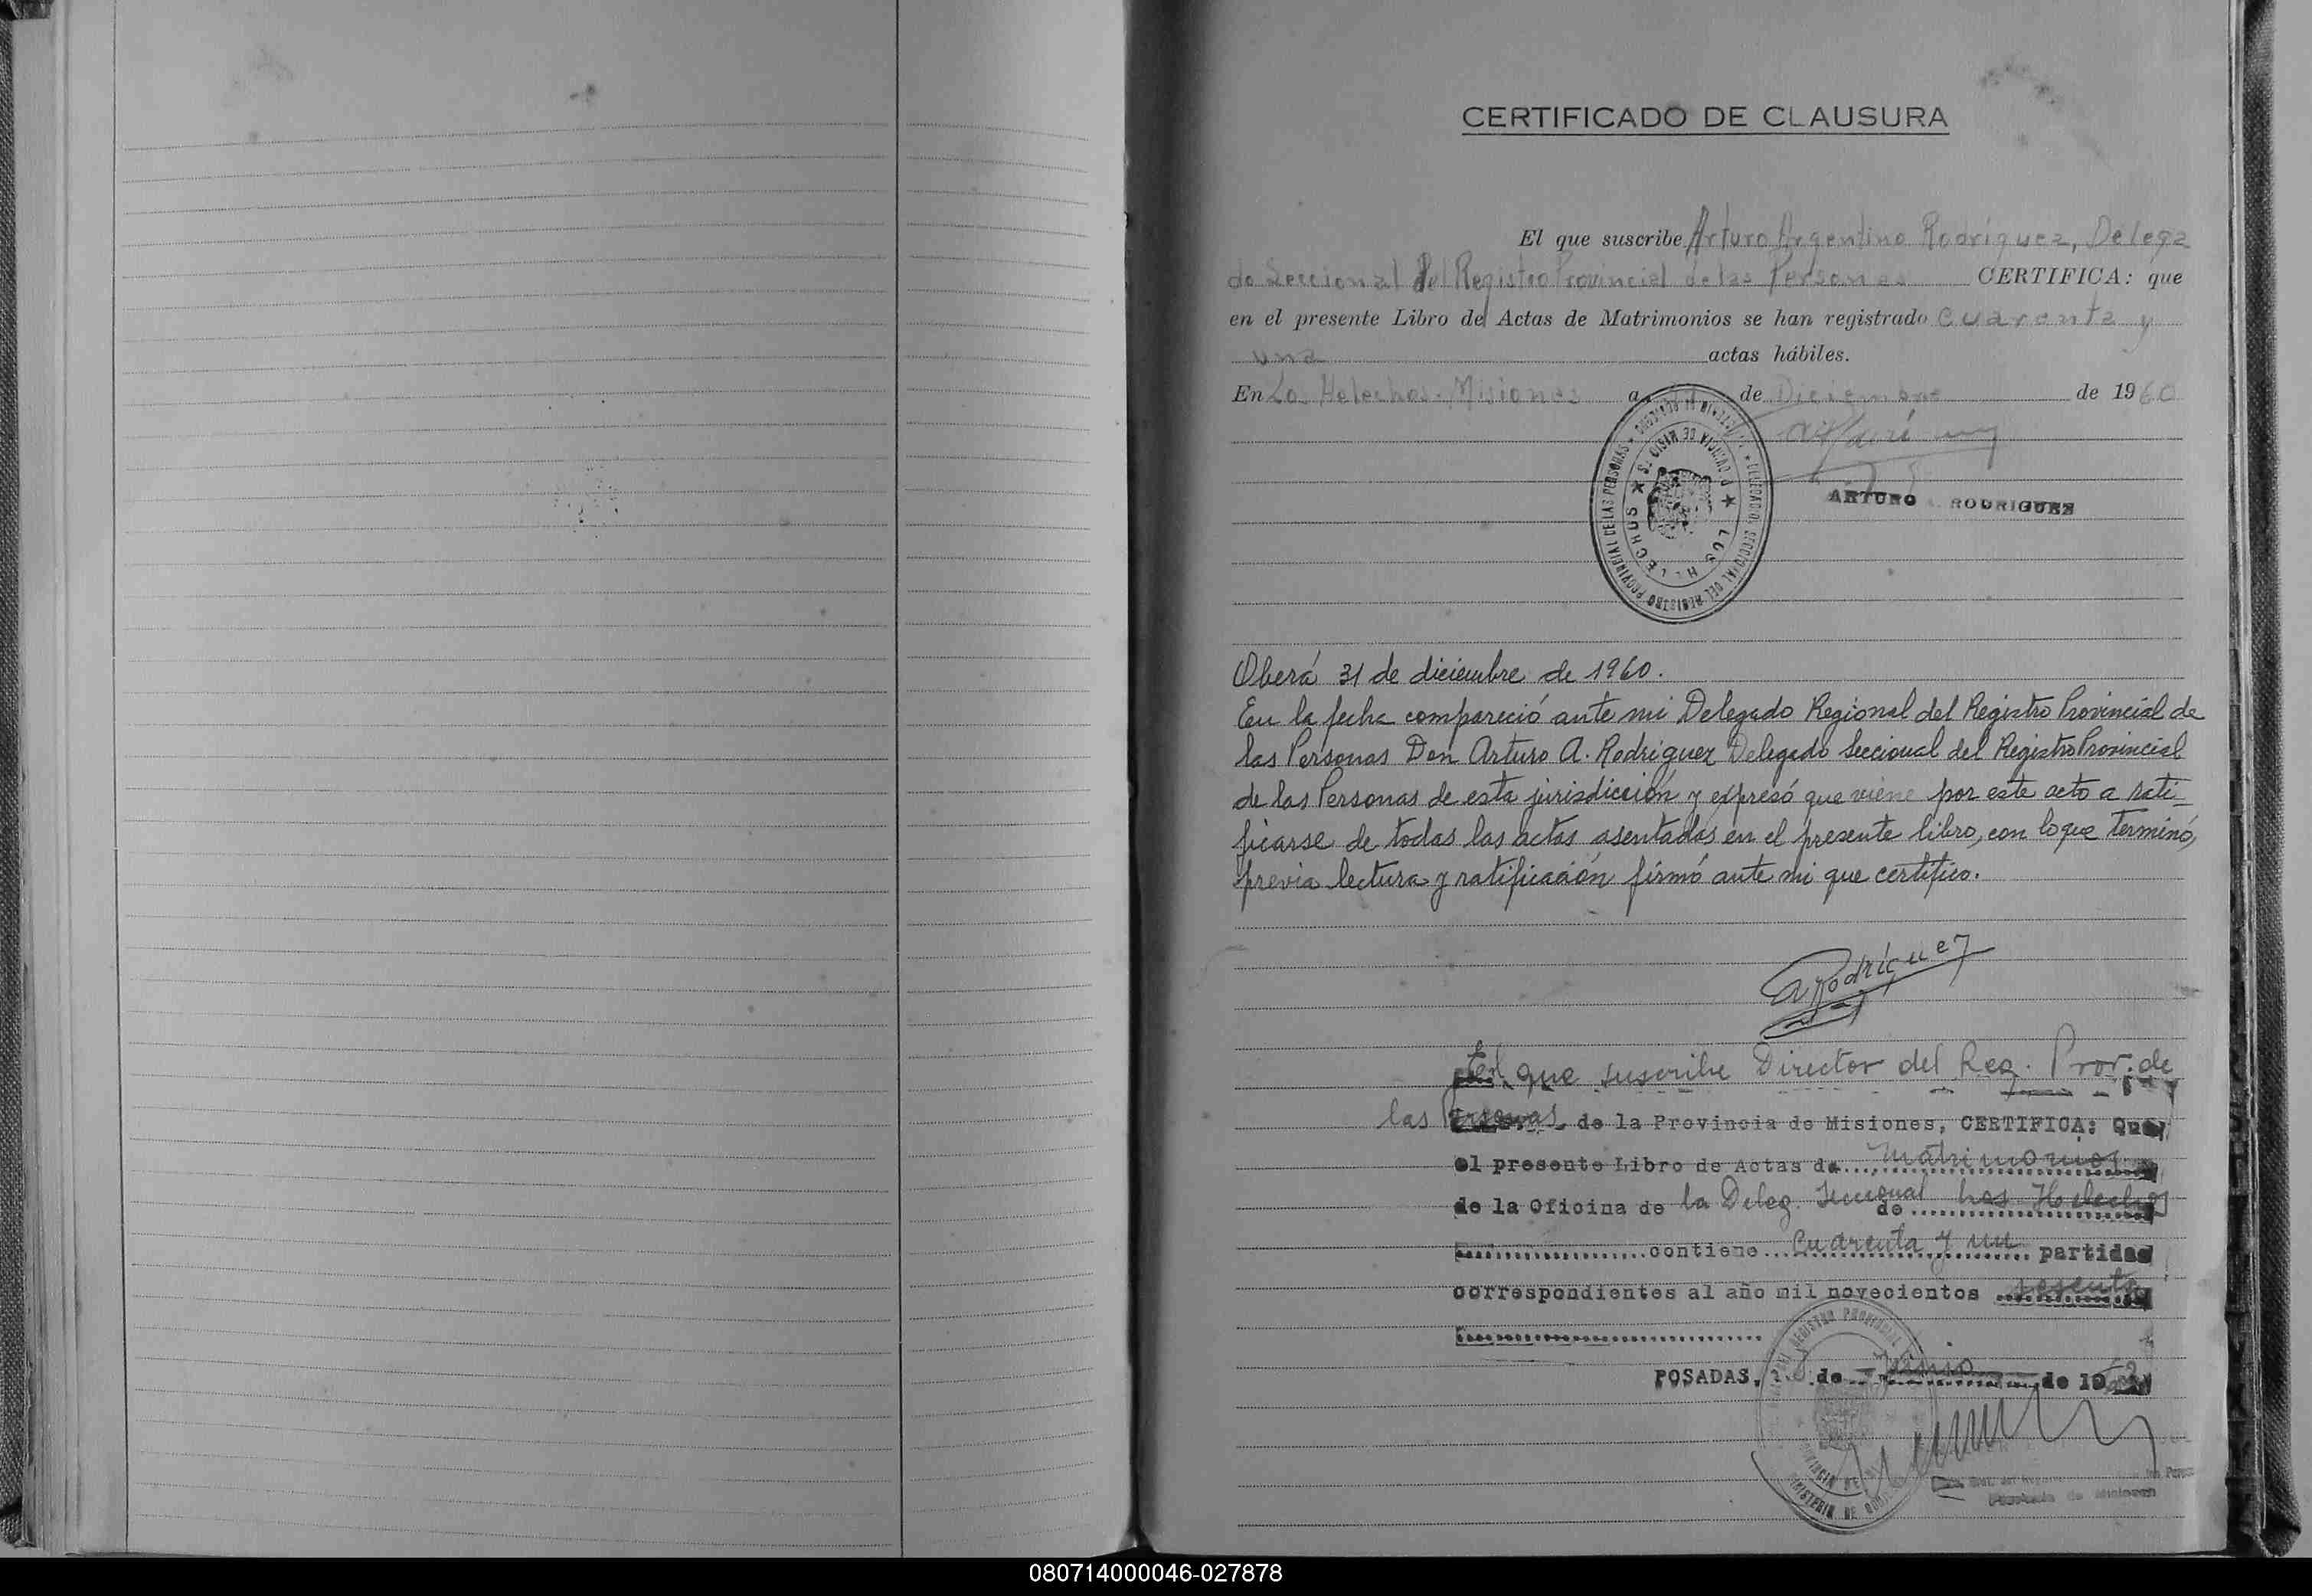 CERTIFICADO DE CLAUSURA
El que suscribe Arturo Argentino Rodríguez, Delega
do Seccional del Registro Provincial de las Personas CERTIFICA: que
en el presente Libro de Actas de Matrimonios se han registrado cuarenta y
una actas hábiles.
En Los Helechos - Misiones a de Diciembre de 1960
ARTURO A. RODRIGUEZ
DELEGACION SECCIONAL DEL REGISTRO PROVINCIAL DE LAS PERSONAS
PROVINCIA DE MISIONES
LOS HELECHOS
Oberá 31 de diciembre de 1960.
En la fecha compareció ante mi Delegado Regional del Registro Provincial de
las Personas Don Arturo A. Rodriguez Delegado Seccional del Registro Provincial
de las Personas de esta jurisdicción y expresó que viene por este acto a rati-
ficarse de todas las actas asentadas en el presente libro, con lo que terminó,
previa lectura y ratificación firmó ante mi que certifico.
A Rodríguez
El que suscribe Director del Reg. Prov. de
las Personas de la Provincia de Misiones, CERTIFICA: Que
el presente Libro de Actas de Matrimonios
de la Oficina de la Deleg. Seccional de Los Helechos
contiene Cuarenta y un partidas
correspondientes al año mil novecientos sesenta
POSADAS, de Junio de 19
REGISTRO PROVINCIAL
Provincia de Misiones
080714000046-027878